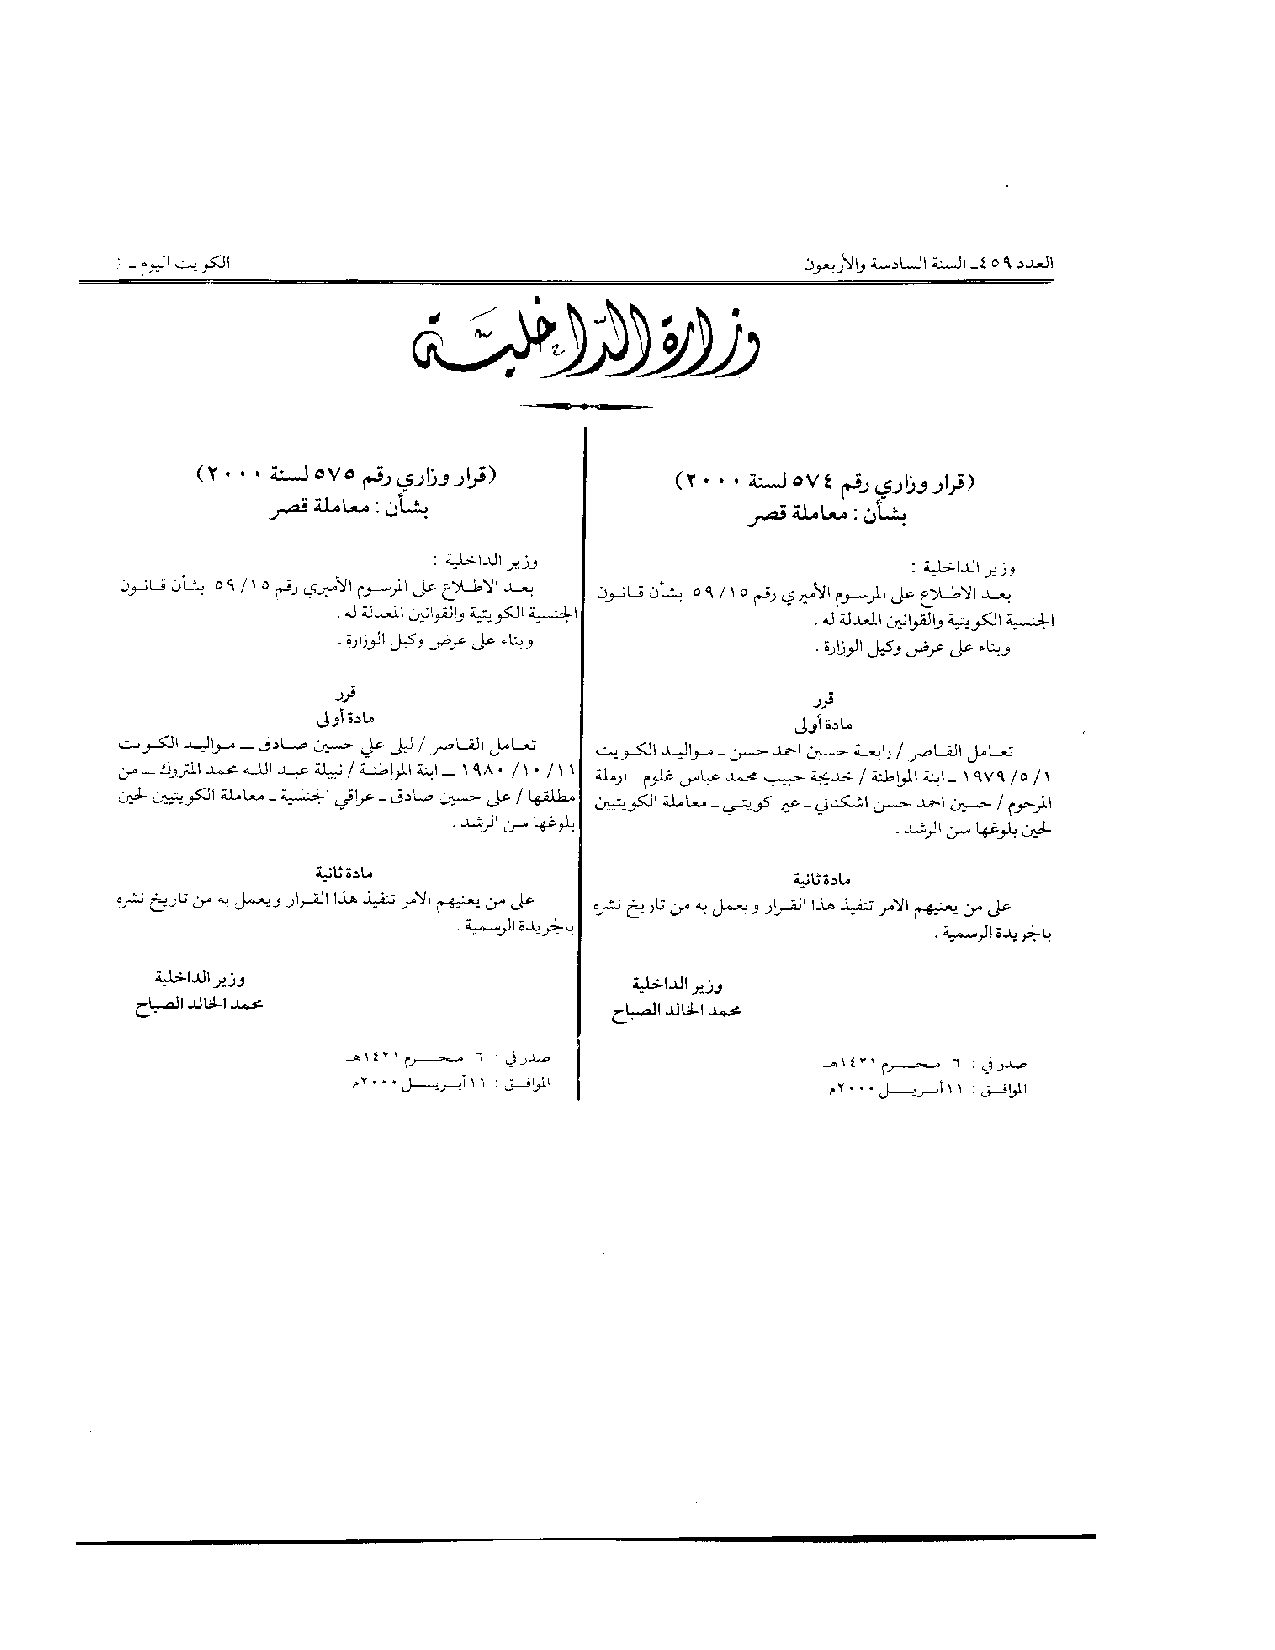 العدد ٤٥٩ـ السنة السادسة والأربعون
الكويت اليوم ـ
وزارة الداخلية
(قرار وزاري رقم ٥٧٤ لسنة ٢٠٠٠)
بشأن : معاملة قصر
وزير الداخلية :
بعد الاطلاع على المرسوم الأميري رقم ٥٩/١٥ بشأن قانون
الجنسية الكويتية والقوانين المعدلة له .
وبناء على عرض وكيل الوزارة .
قرر
مادة أولى
تعامل القاصر / رابعة حسين احمد حسن ـ مواليد الكويت
١٩٧٩/٥/١ ـ ابنة المواطنة / خديجة حبيب محمد عباس غلوم ارملة
المرحوم / حسين احمد حسن اشكناني ـ غير كويتي ـ معاملة الكويتيين
لحين بلوغها سن الرشد .
مادة ثانية
على من يعنيهم الامر تنفيذ هذا القرار ويعمل به من تاريخ نشره
بالجريدة الرسمية .
وزير الداخلية
محمد الخالد الصباح
صدر في : ٦ محرم ١٤٢١هـ
الموافق : ١١ أبريل ٢٠٠٠م
(قرار وزاري رقم ٥٧٥ لسنة ٢٠٠٠)
بشأن : معاملة قصر
وزير الداخلية :
بعد الاطلاع على المرسوم الأميري رقم ٥٩/١٥ بشأن قانون
الجنسية الكويتية والقوانين المعدلة له .
وبناء على عرض وكيل الوزارة .
قرر
مادة أولى
تعامل القاصر / ليلى علي حسين صادق ـ مواليد الكويت
١٩٨٠/١٠/١١ ـ ابنة المواطنة / نبيلة عبد الله محمد المتروك ـ من
مطلقها / على حسين صادق ـ عراقي الجنسية ـ معاملة الكويتيين لحين
بلوغها سن الرشد .
مادة ثانية
على من يعنيهم الامر تنفيذ هذا القرار ويعمل به من تاريخ نشره
بالجريدة الرسمية .
وزير الداخلية
محمد الخالد الصباح
صدر في : ٦ محرم ١٤٢١هـ
الموافق : ١١ أبريل ٢٠٠٠م